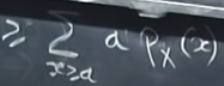 ≥ ∑_{x≥a} a p_X(x)